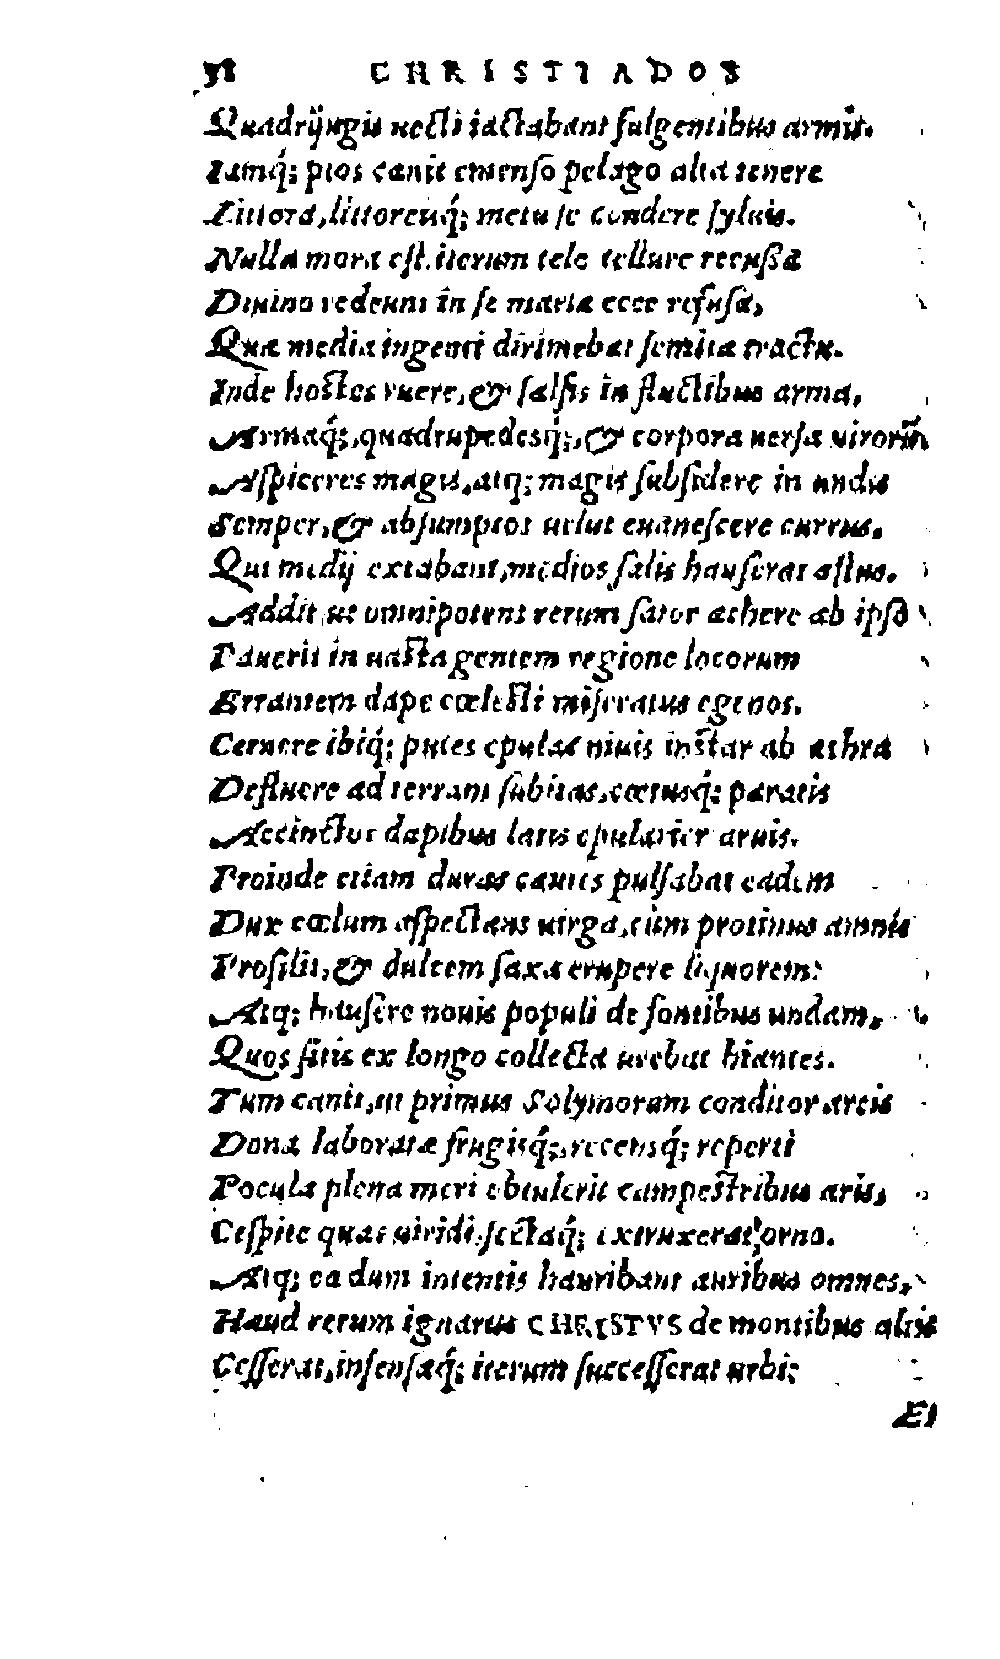 38 CHRISTIADOS
Quadrijugis uecti iactabant fulgentibus armis.
Iamq́; pios canit emenso pelago alta tenere
Littora, littoreisq́; metu se condere syluis.
Nulla mora est. iterum telo tellure recussa
Diuino redeunt in se maria ecce refusa,
Quæ media ingenti dirimebat semita tractu.
Inde hostes ruere, & salsis in fluctibus arma,
Armaq́;, quadrupedesq́;, & corpora uersa uirorũ
Aspiceres magis, atq; magis subsidere in undis
Semper, & absumptos uelut euanescere currus.
Qui medij extabant, medios salis hauserat æstus.
Addit, ut omnipotens rerum sator æthere ab ipso
Pauerit in uasta gentem regione locorum
Errantem dape cœlesti miseratus egenos.
Cernere ibiq́; putes epulas niuis instar ab æthra
Defluere ad terram subitas, cœtusq́; paratis
Accinctos dapibus latis epularier aruis.
Proinde etiam duras cautes pulsabat eadem
Dux cœlum aspectans uirga, cùm protinus amnis
Prosilit, & dulcem saxa erupere liquorem:
Atq; hausere nouis populi de fontibus undam,
Quos sitis ex longo collecta urebat hiantes.
Tum canit, ut primus Solymorum conditor arcis
Dona laboratæ frugisq́;, recensq́; reperti
Pocula plena meri obtulerit campestribus aris,
Cespite quas uiridi, sectaq́; extruxerat orno.
Atq; ea dum intentis hauribant auribus omnes,
Haud rerum ignarus CHRISTVS de montibus altis
Cesserat, infensaq́; iterum successerat urbi;
Ei